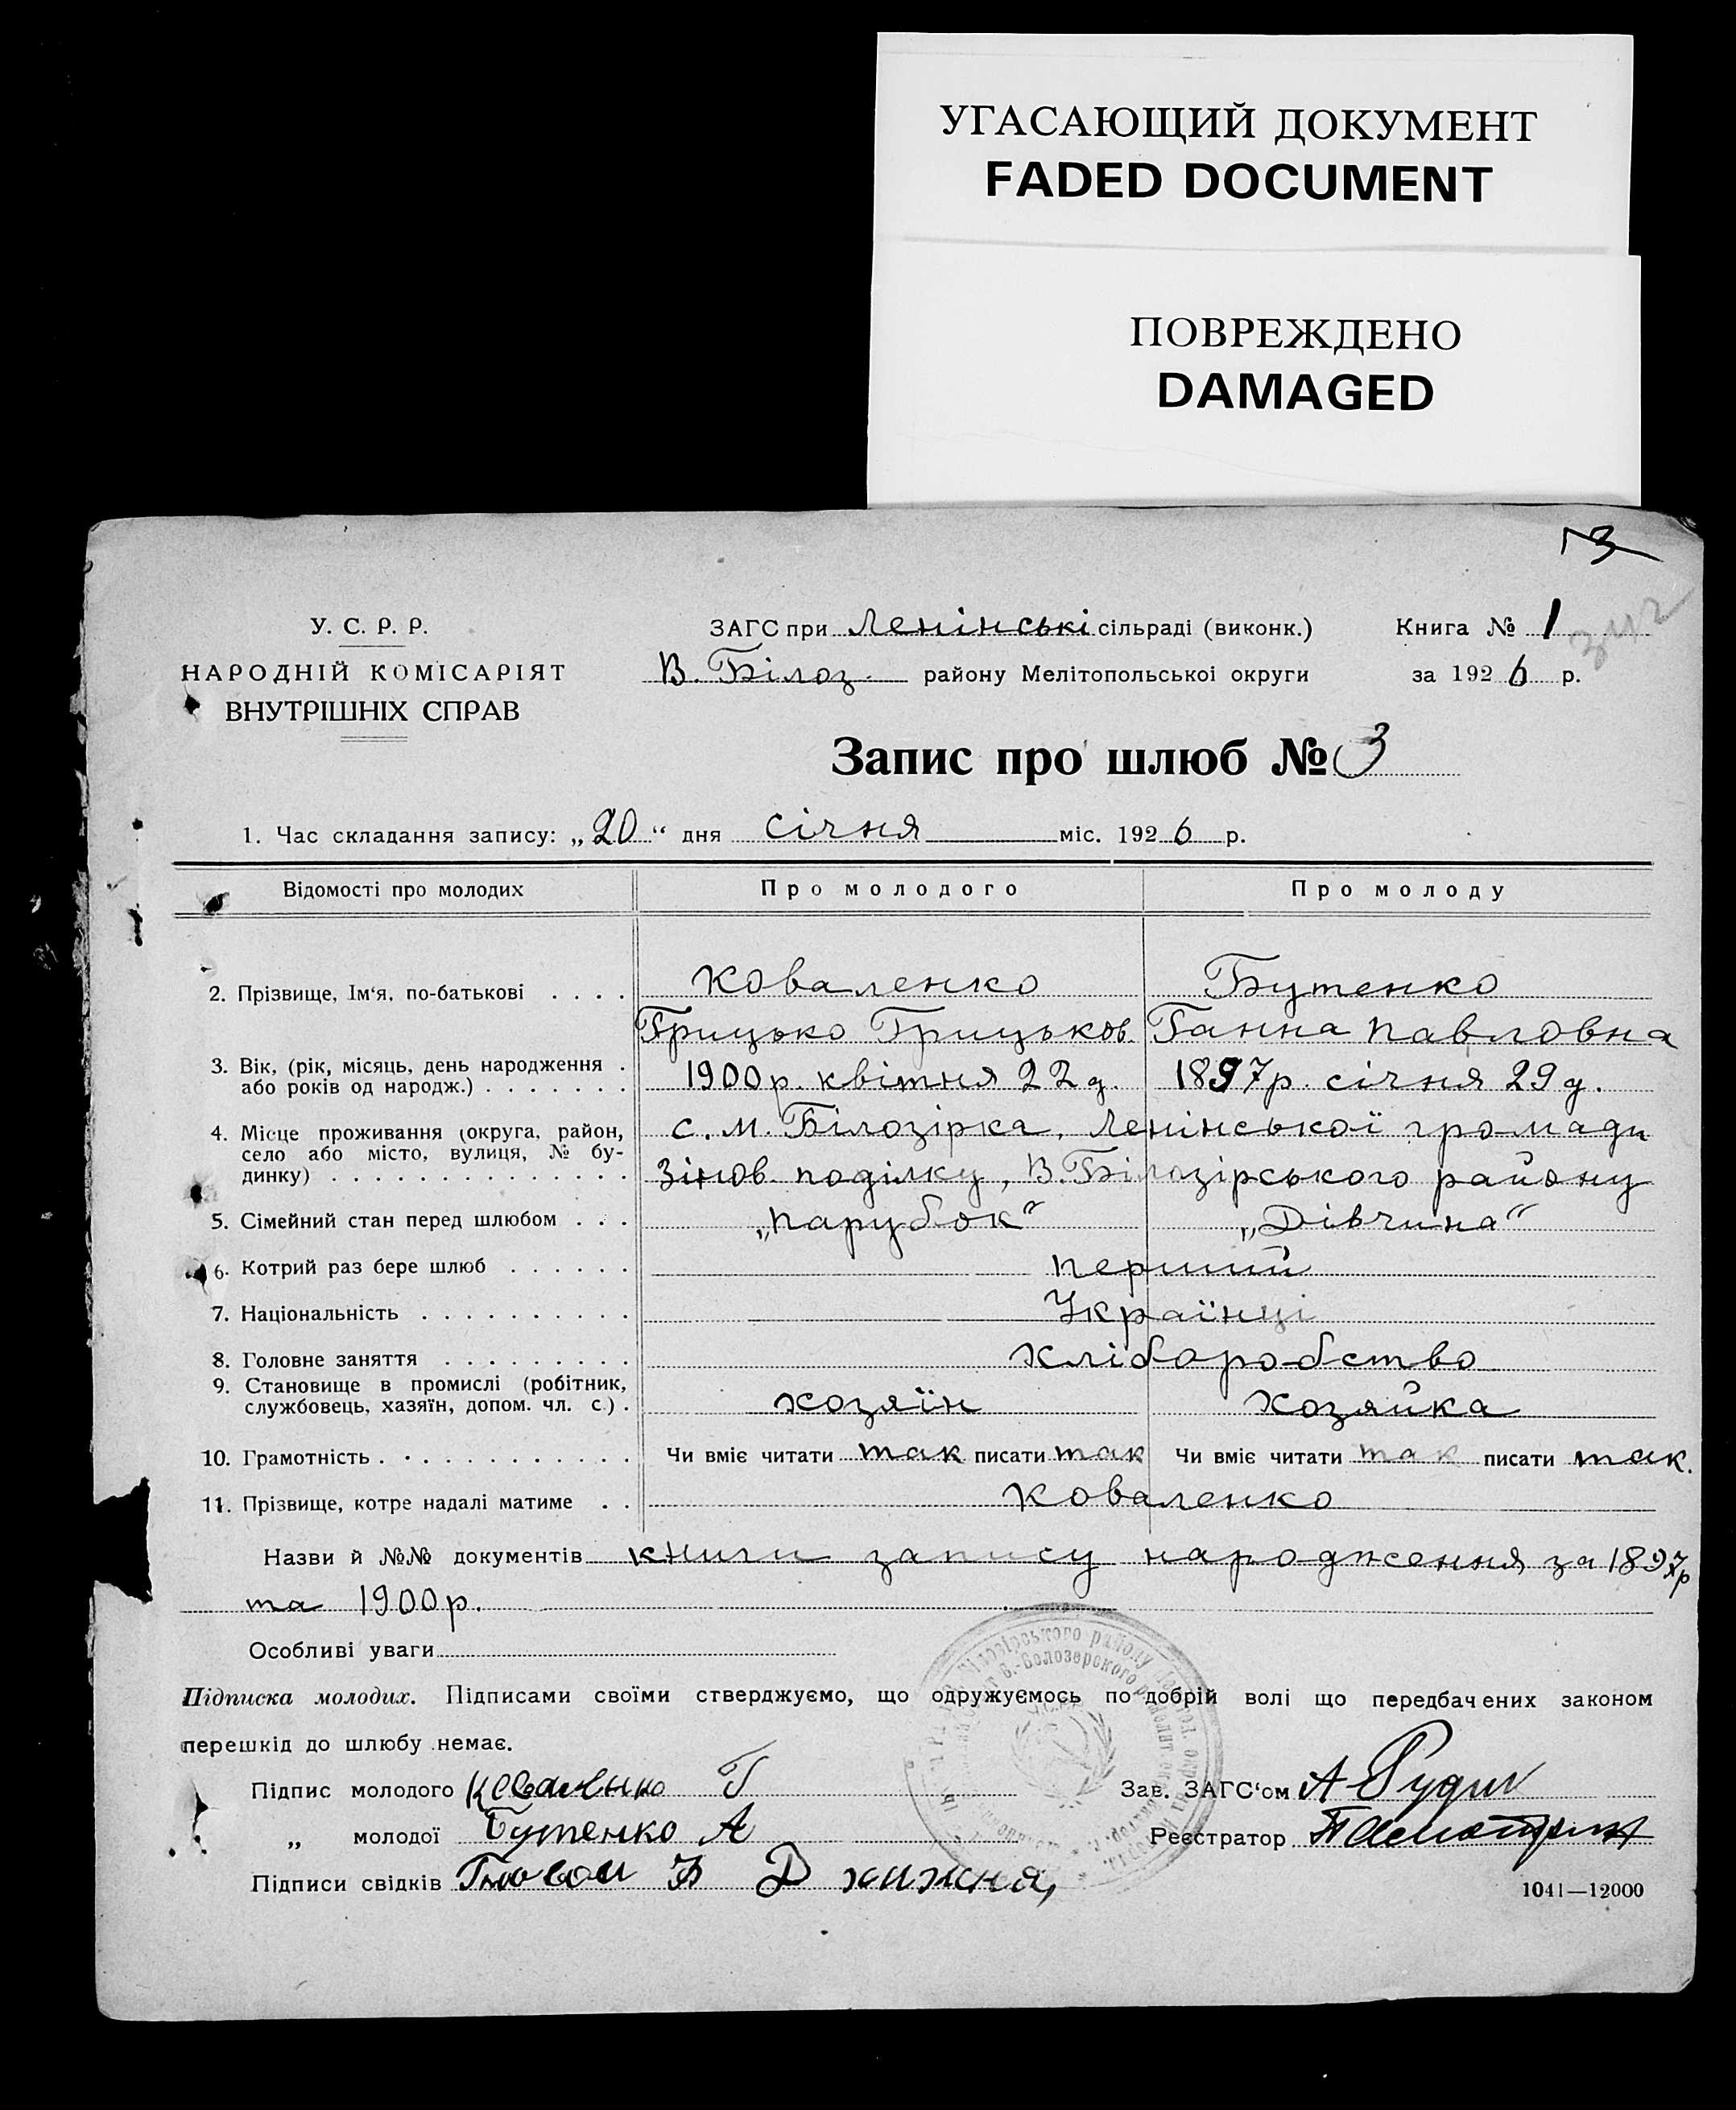 УГАСАЮЩИЙ ДОКУМЕНТ
FADED DOCUMENT
ПОВРЕЖДЕНО
DAMAGED
3
У. С. Р. Р.
НАРОДНІЙ КОМІСАРІЯТ
ВНУТРІШНІХ СПРАВ
ЗАГС при Ленінські сільраді (виконк.)
В. Білоз. району Мелітопольськоі округи
Книга № 1
за 1926 р.
Запис про шлюб № 3
1. Час складання запису: „20“ дня січня міс. 1926 р.
Відомості про молодих Про молодого Про молоду
2. Прізвище, Ім‘я, по-батькові . . . . Коваленко Бутенко
Грицько Грицьков. Ганна Павловна
3. Вік, (рік, місяць, день народження .
або років од народж.) . . . . . . . 1900 р. квітня 22 д. 1897 р. січня 29 д.
4. Місце проживання (округа, район, с. М. Білозірка, Ленінської громади
село або місто, вулиця, № бу-
динку) . . . . . . . . . . . . . . . Зінов. поділку, В. Білозірського району
5. Сімейний стан перед шлюбом . . . „парубок“ „Дівчина“
6. Котрий раз бере шлюб . . . . . . перший
7. Національність . . . . . . . . . . Українці
8. Головне заняття . . . . . . . . . хліборобство
9. Становище в промислі (робітник,
службовець, хазяїн, допом. чл. с.) . хозяїн Хозяйка
10. Грамотність . . . . . . . . . . . . Чи вміє читати так писати так Чи вміє читати так писати так.
11. Прізвище, котре надалі матиме . . Коваленко
Назви й №№ документів книги запису народження за 1897р
та 1900 р.
Особливі уваги
Підписка молодих. Підписами своїми стверджуємо, що одружуємось по добрій волі що передбачених законом
перешкід до шлюбу немає.
Підпис молодого Коваленко Г
„ молодої Бутенко А
Підписи свідків Д хижня
Зав. ЗАГС‘ом А
Реєстратор
1041—12000